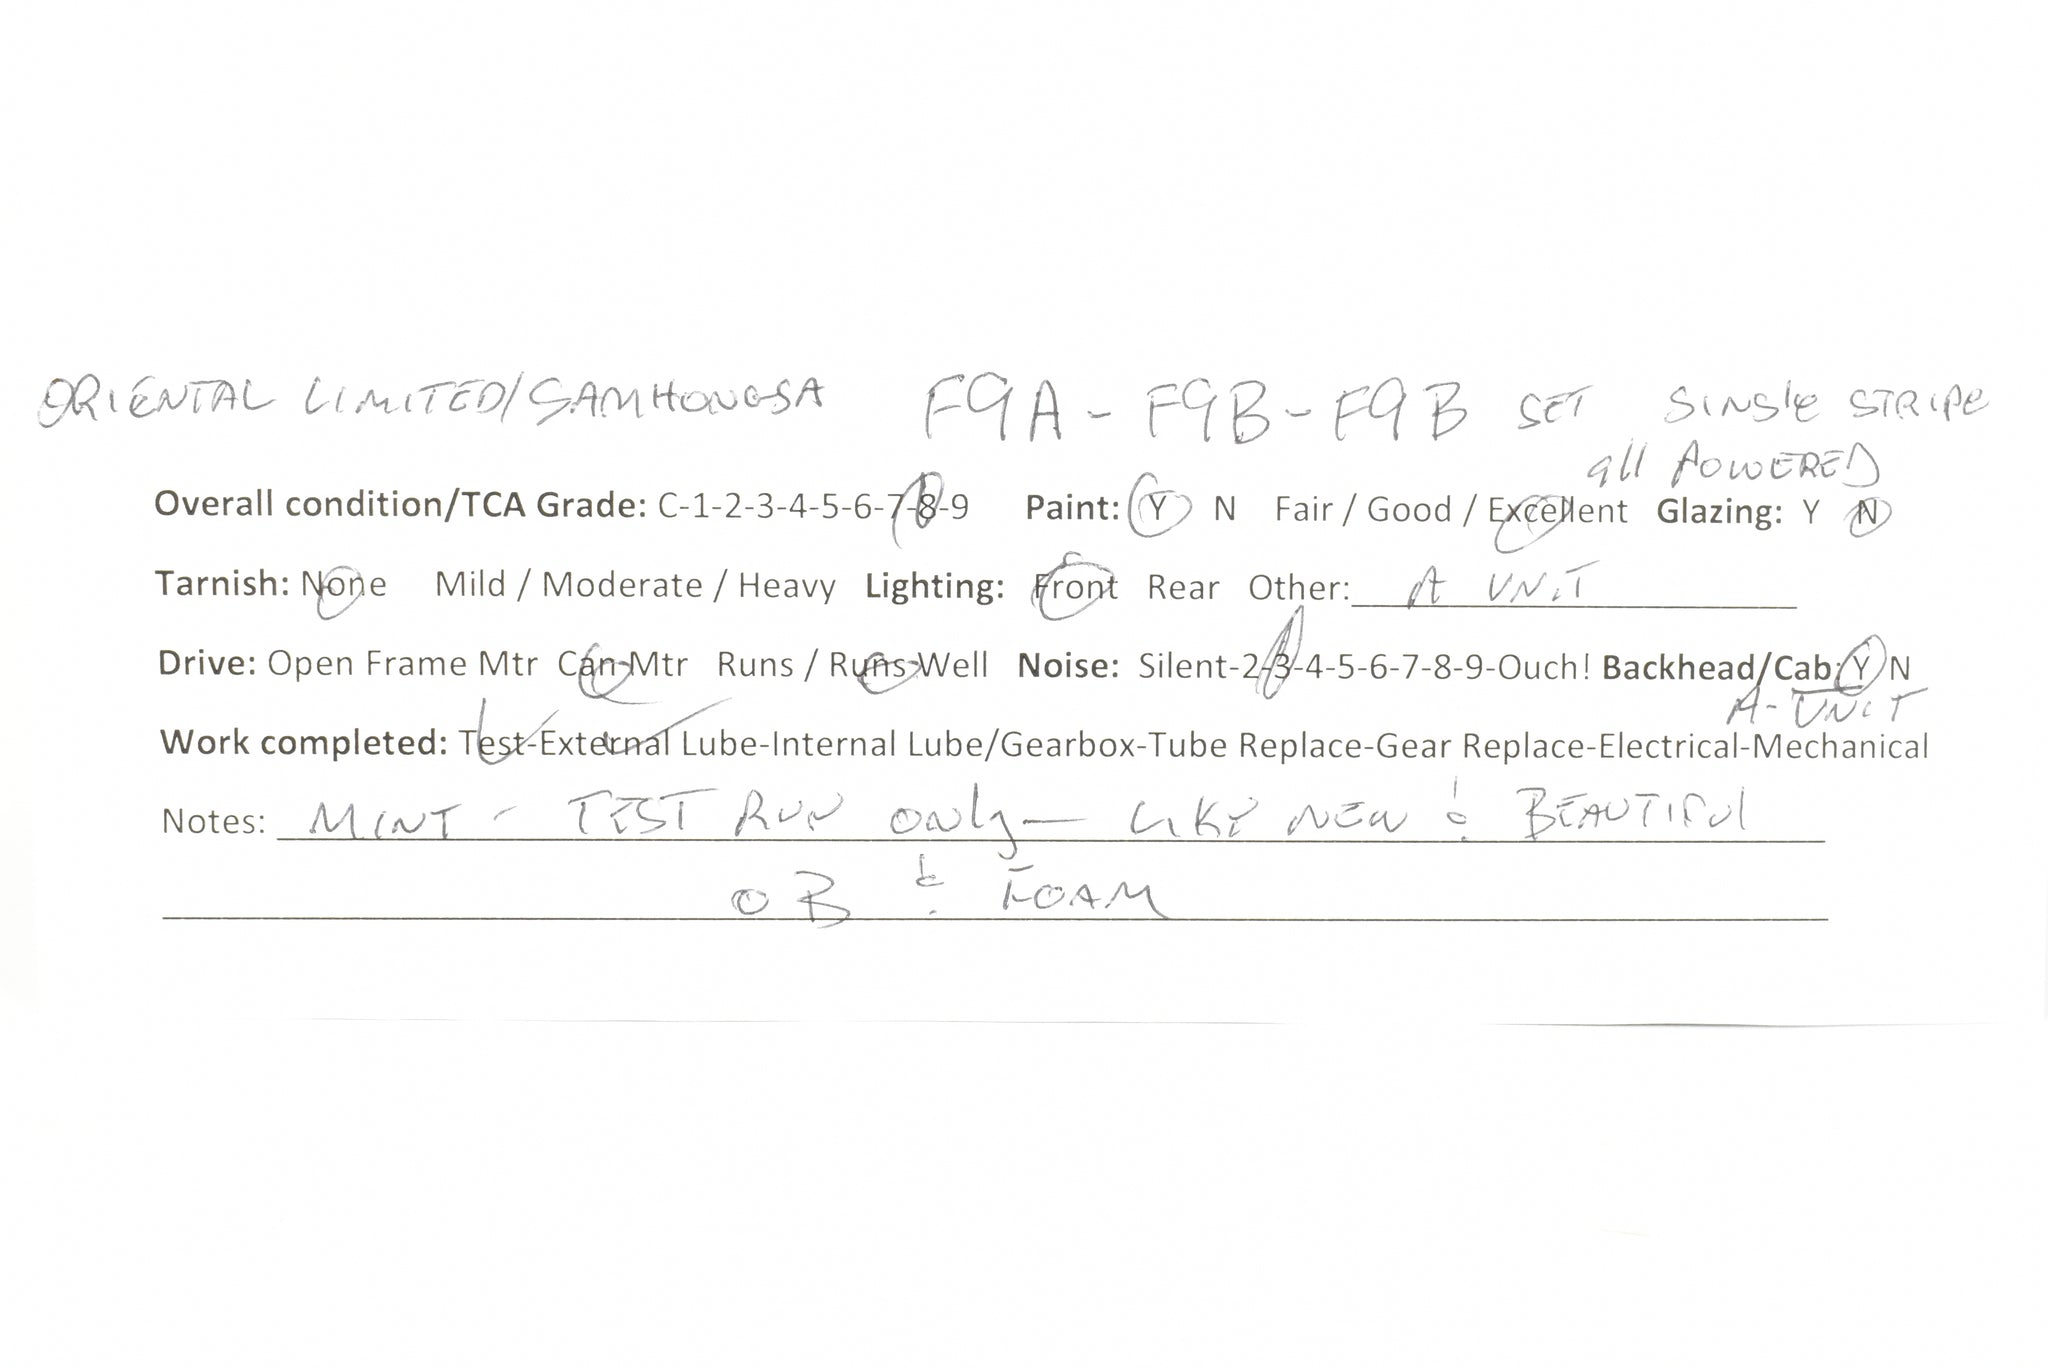 ORIENTAL LIMITED/SAMHONGSA F9A - F9B - F9B SET SINGLE STRIPE
all POWERED
Overall condition/TCA Grade: C-1-2-3-4-5-6-7-8-9 Paint: Y N Fair / Good / Excellent Glazing: Y N
Tarnish: None Mild / Moderate / Heavy Lighting: Front Rear Other: A UNIT
Drive: Open Frame Mtr Can Mtr Runs / Runs-Well Noise: Silent-2-3-4-5-6-7-8-9-Ouch! Backhead/Cab: Y N
A-UNIT
Work completed: Test-External Lube-Internal Lube/Gearbox-Tube Replace-Gear Replace-Electrical-Mechanical
Notes: MINT - TEST RUN ONLY - LIKE NEW & BEAUTIFUL
OB & FOAM